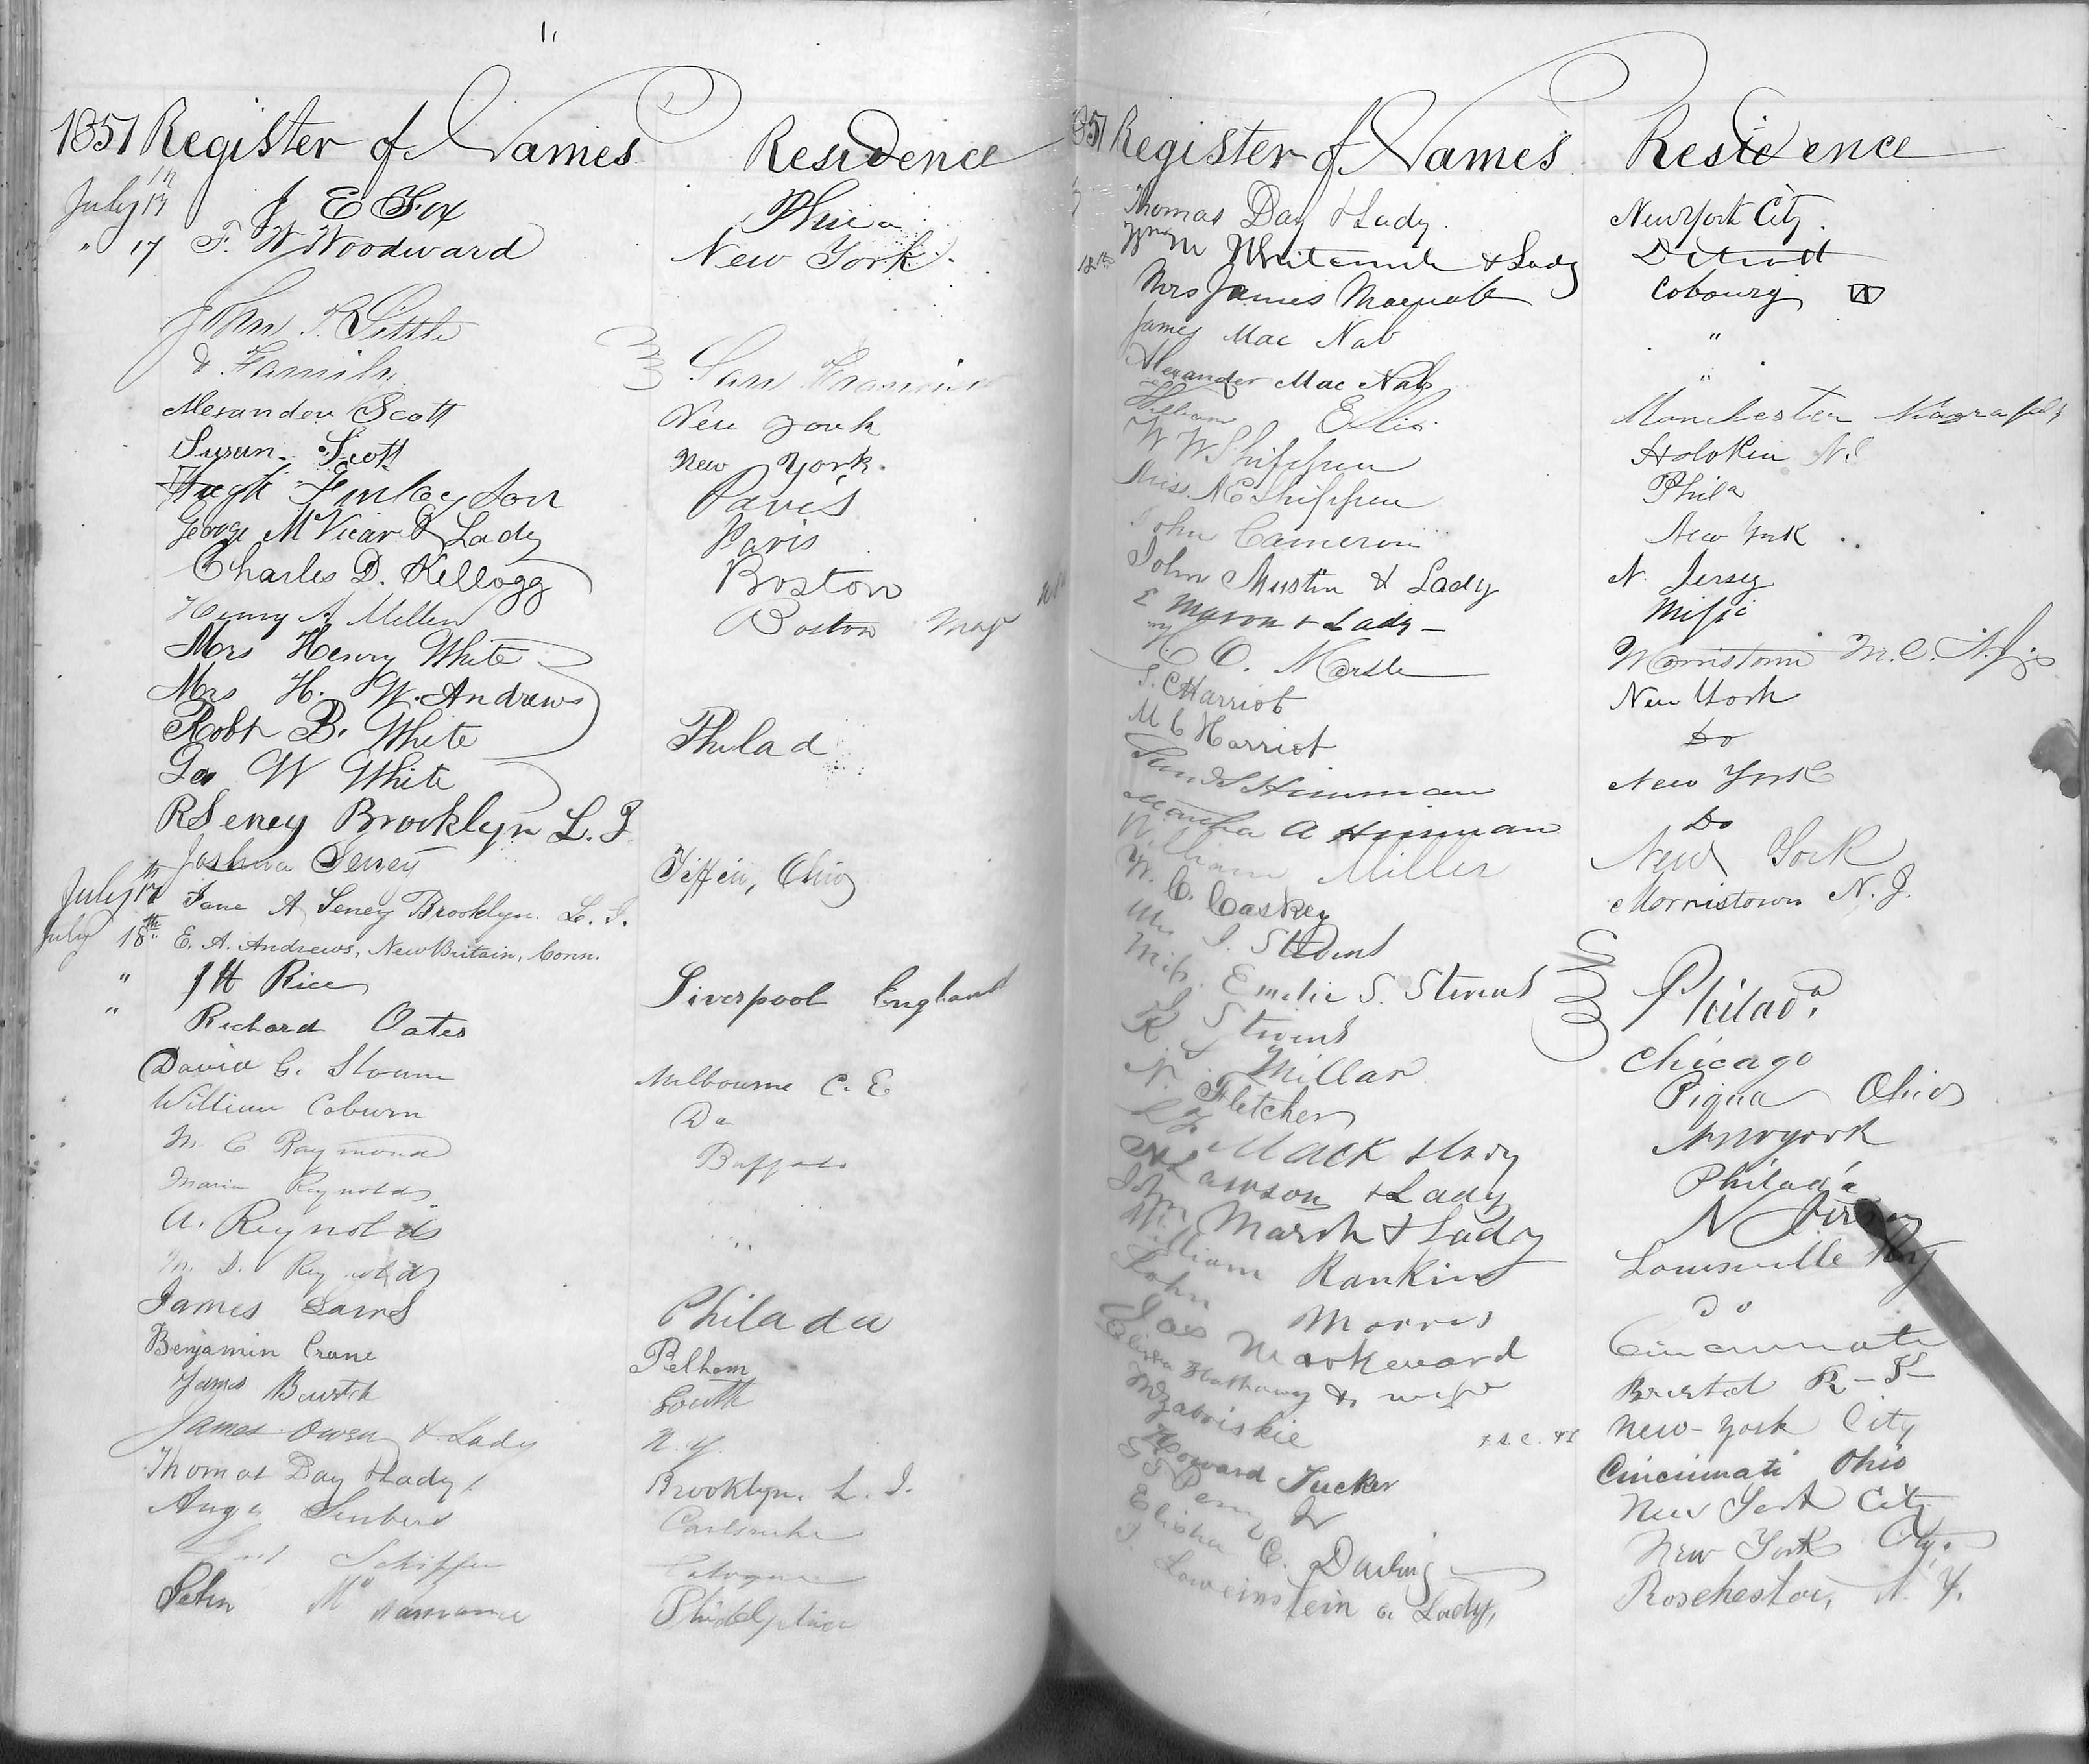 1851 Register of Names Residence
July 17 J E Fox Phila
" 17 F. W Woodward New York
John R Little
& Family San Francisco
Alexander Scott New York
Susan Scott New York.
Hugh Finlayson Paris
George McVicar & Lady Paris
Charles D. Kellogg Boston
Henry A Miller Boston Mass
Mrs Henry White
Mrs H. W. Andrews
Robt B. White Philad
Geo W White
R Seney Brooklyn L. I
Joshua Seney Tiffin, Ohio
July 17th Jane A Seney Brooklyn. L. I.
July 18th E. A. Andrews, New Britain, Conn.
" J H Rice Liverpool England
" Richard Oates
David G. Sloane Melbourne C. E
William Coburn Do
M. C Raymond Buffalo
Maria Reynolds
A. Reynolds "
M. D. Reynolds
James Laird Philada
Benjamin Crane Pelham
James Burtch South
James Owen & Lady N. Y.
Thomas Day & Lady Brooklyn. L. I.
Carlsruhe
Schiffer Cologne
John Philadelphia
1851 Register of Names Residence
Thomas Day & Lady New York City.
18th & Lady Detroit
Mrs James Macnab Cobourg CW
James Mac Nab "
Alexander Mac Nab "
William Ellis Manchester Niagra falls
W W Shippen Hoboken NJ
Miss M E Shippen Phila
John Cameron New York
John Mustin & Lady N. Jersey
E Mason & Lady Missi
C. Morristown N. Jersey
S. C Harriot New York
M C Harriot Do
Hinman New York
Martha A Hinman Do
William Miller New York
W. C. Caskey Morristown N. J.
J. Stevens
Miss. Emelie S. Stevens Philada.
S Stevens
K. S Millar Chicago
N. Fletcher Piqua Ohio
Mack & Lady New york
N Lawson & Lady Philada
John Marsh & Lady N Jersey
William Rankin Louisville Ky
John Morris Do
Jas Markward Cincinnati
Hathaway & wife Bristol R-I-
Zabriskie New-York City
Howard Tucker Cincinnati Ohio
G T Perry Jr New York City
Elisha C. Darling New York City.
J. Loweinstein & Lady, Roschester, N. Y.